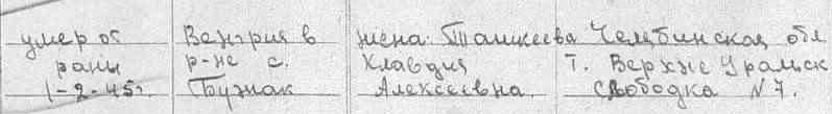 умер от Венгрия в жена. Ташкеева Челябинская обл
раны р-не с. Клавдия г. Верхне Уральск
1-2-45г. Бужак Алексеевна. Слободка N 7.